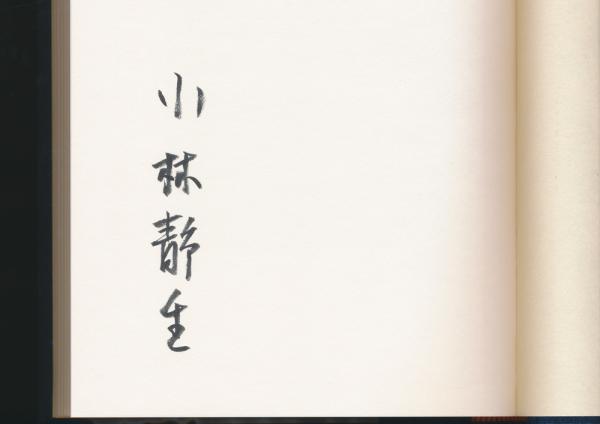 小林静生